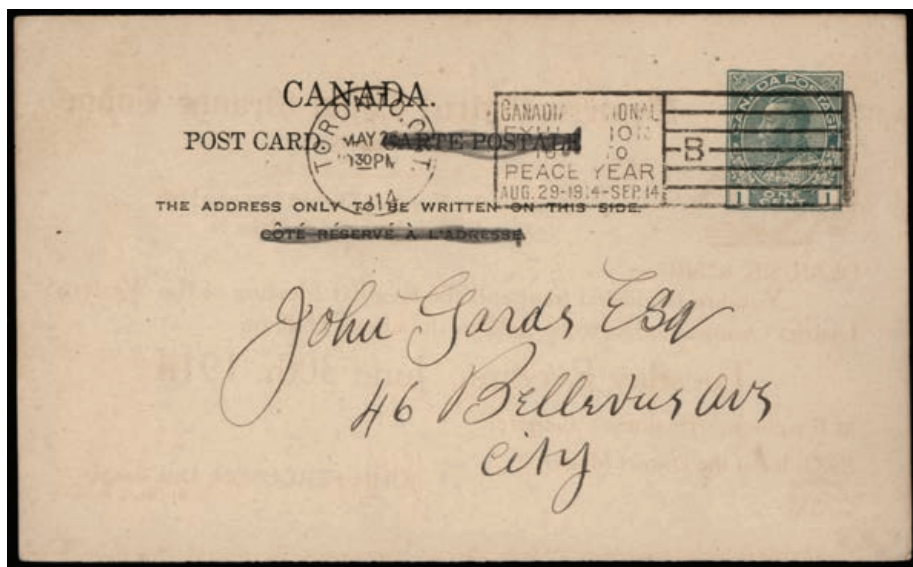 CANADA.
POST CARD CARTE POSTALE
TORONTO, ONT.
MAY
30 PM
14
CANADIAN NATIONAL
EXHIBITION
TORONTO
PEACE YEAR
AUG. 29-1914-SEP. 14
B
CANADA POSTAGE
1 ONE CENT 1
THE ADDRESS ONLY TO BE WRITTEN ON THIS SIDE.
CÔTÉ RÉSERVÉ À L'ADRESSE
John Esq
46 Bellevue Ave
City